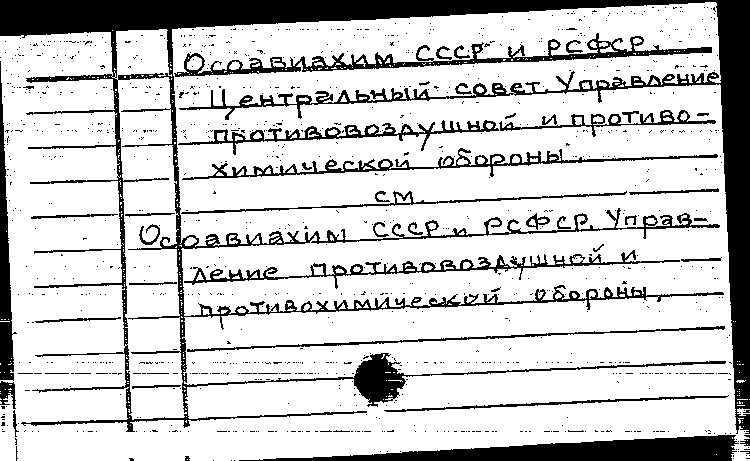 Осоавиахим СССР и РСФСР.
Центральный совет. Управление
противовоздушной и противо-
химической обороны.
см.
Осоавиахим СССР и РСФСР. Управ-
ление противовоздушной и
противохимической обороны.